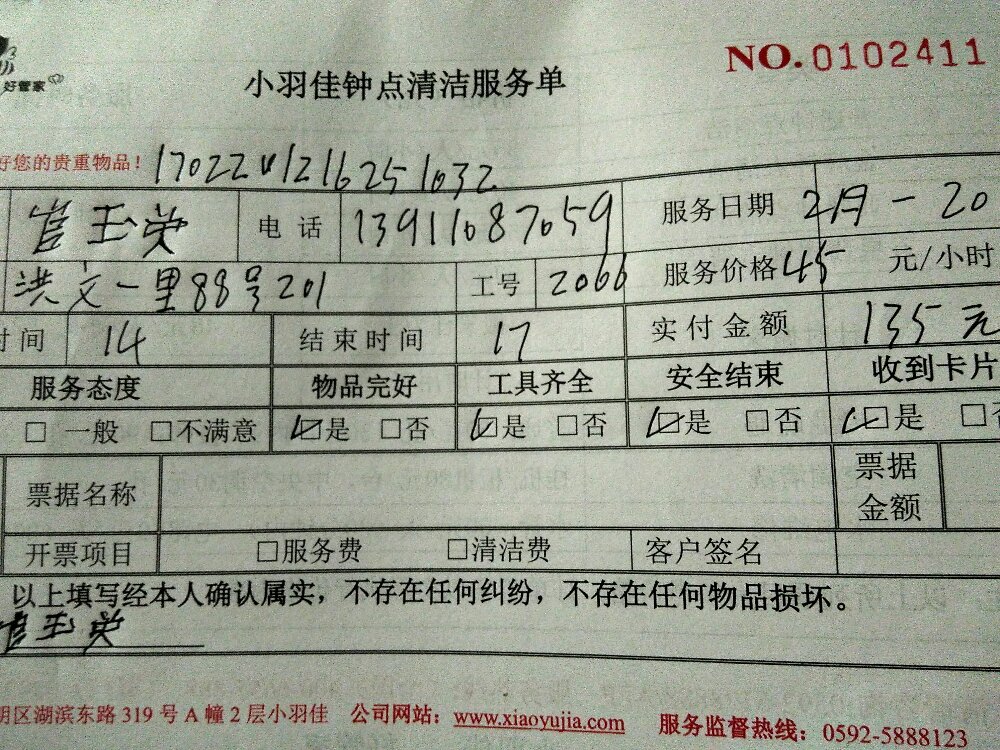 好管家
小羽佳钟点清洁服务单
NO.0102411
好您的贵重物品！ 17022012162251032
官玉英 电话 13911087059 服务日期 2月-20
洪文一里88号201 工号 2066 服务价格 45 元/小时
时间 14 结束时间 17 实付金额 135元
服务态度 物品完好 工具齐全 安全结束 收到卡片
□ 一般 □不满意 ☑是 □否 ☑是 □否 ☑是 □否 ☑是 □否
票据名称 票据金额
开票项目 □服务费 □清洁费 客户签名
以上填写经本人确认属实，不存在任何纠纷，不存在任何物品损坏。
官玉英
明区湖滨东路 319 号 A 幢 2 层小羽佳 公司网站：www.xiaoyujia.com 服务监督热线：0592-5888123